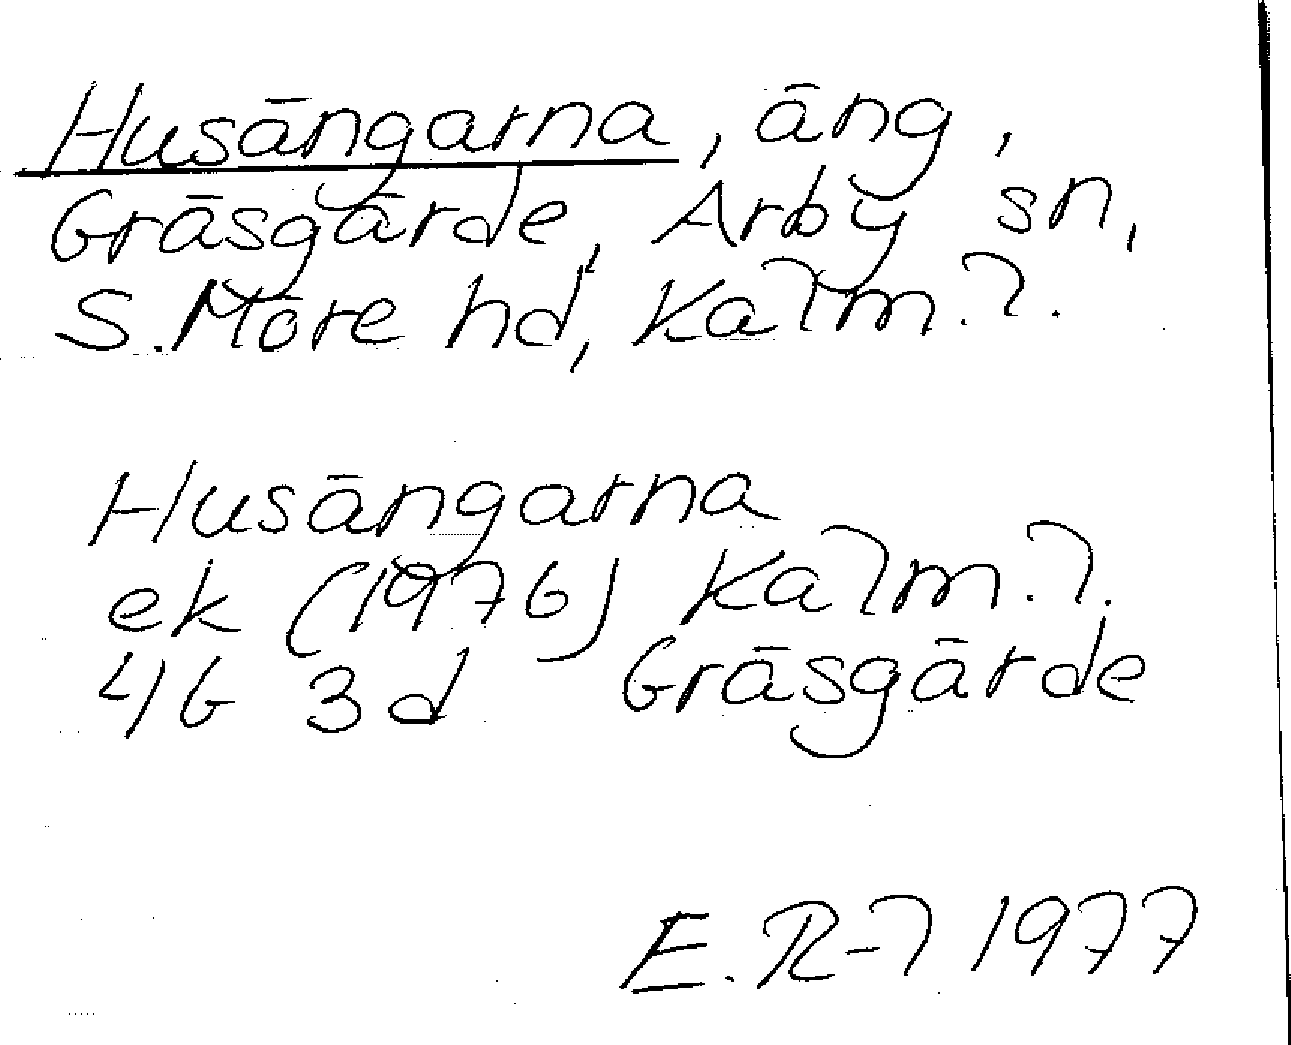 Husängarna, äng,
Gräsgärde, Arby sn,
S. Möre hd, Kalm. l.
Husängarna
ek (1976) Kalm. l.
4G 3d Gräsgärde
E. R-l 1977